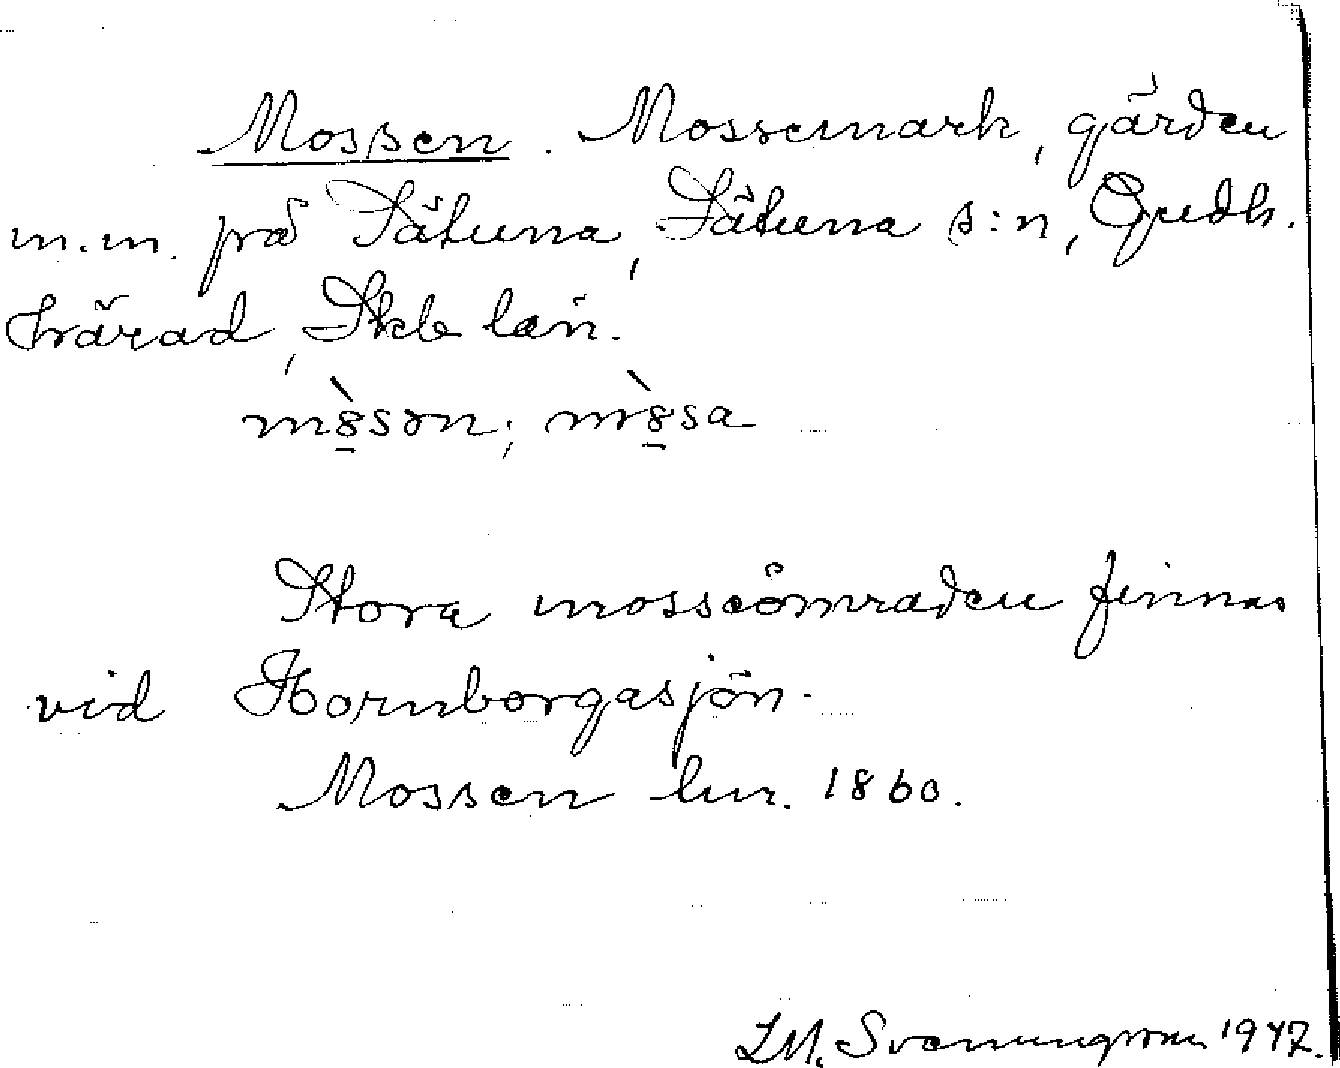 Mossen. Mossemark, gärden
m.m. på Sätuna, Sätuna s:n, Gudh.
härad, Skb län.
mò̱sən; mò̱sa
Stora mosseområden finnas
vid Hornborgasjön.
Mossen lm. 1860.
I.M. Svenungsson 1947.